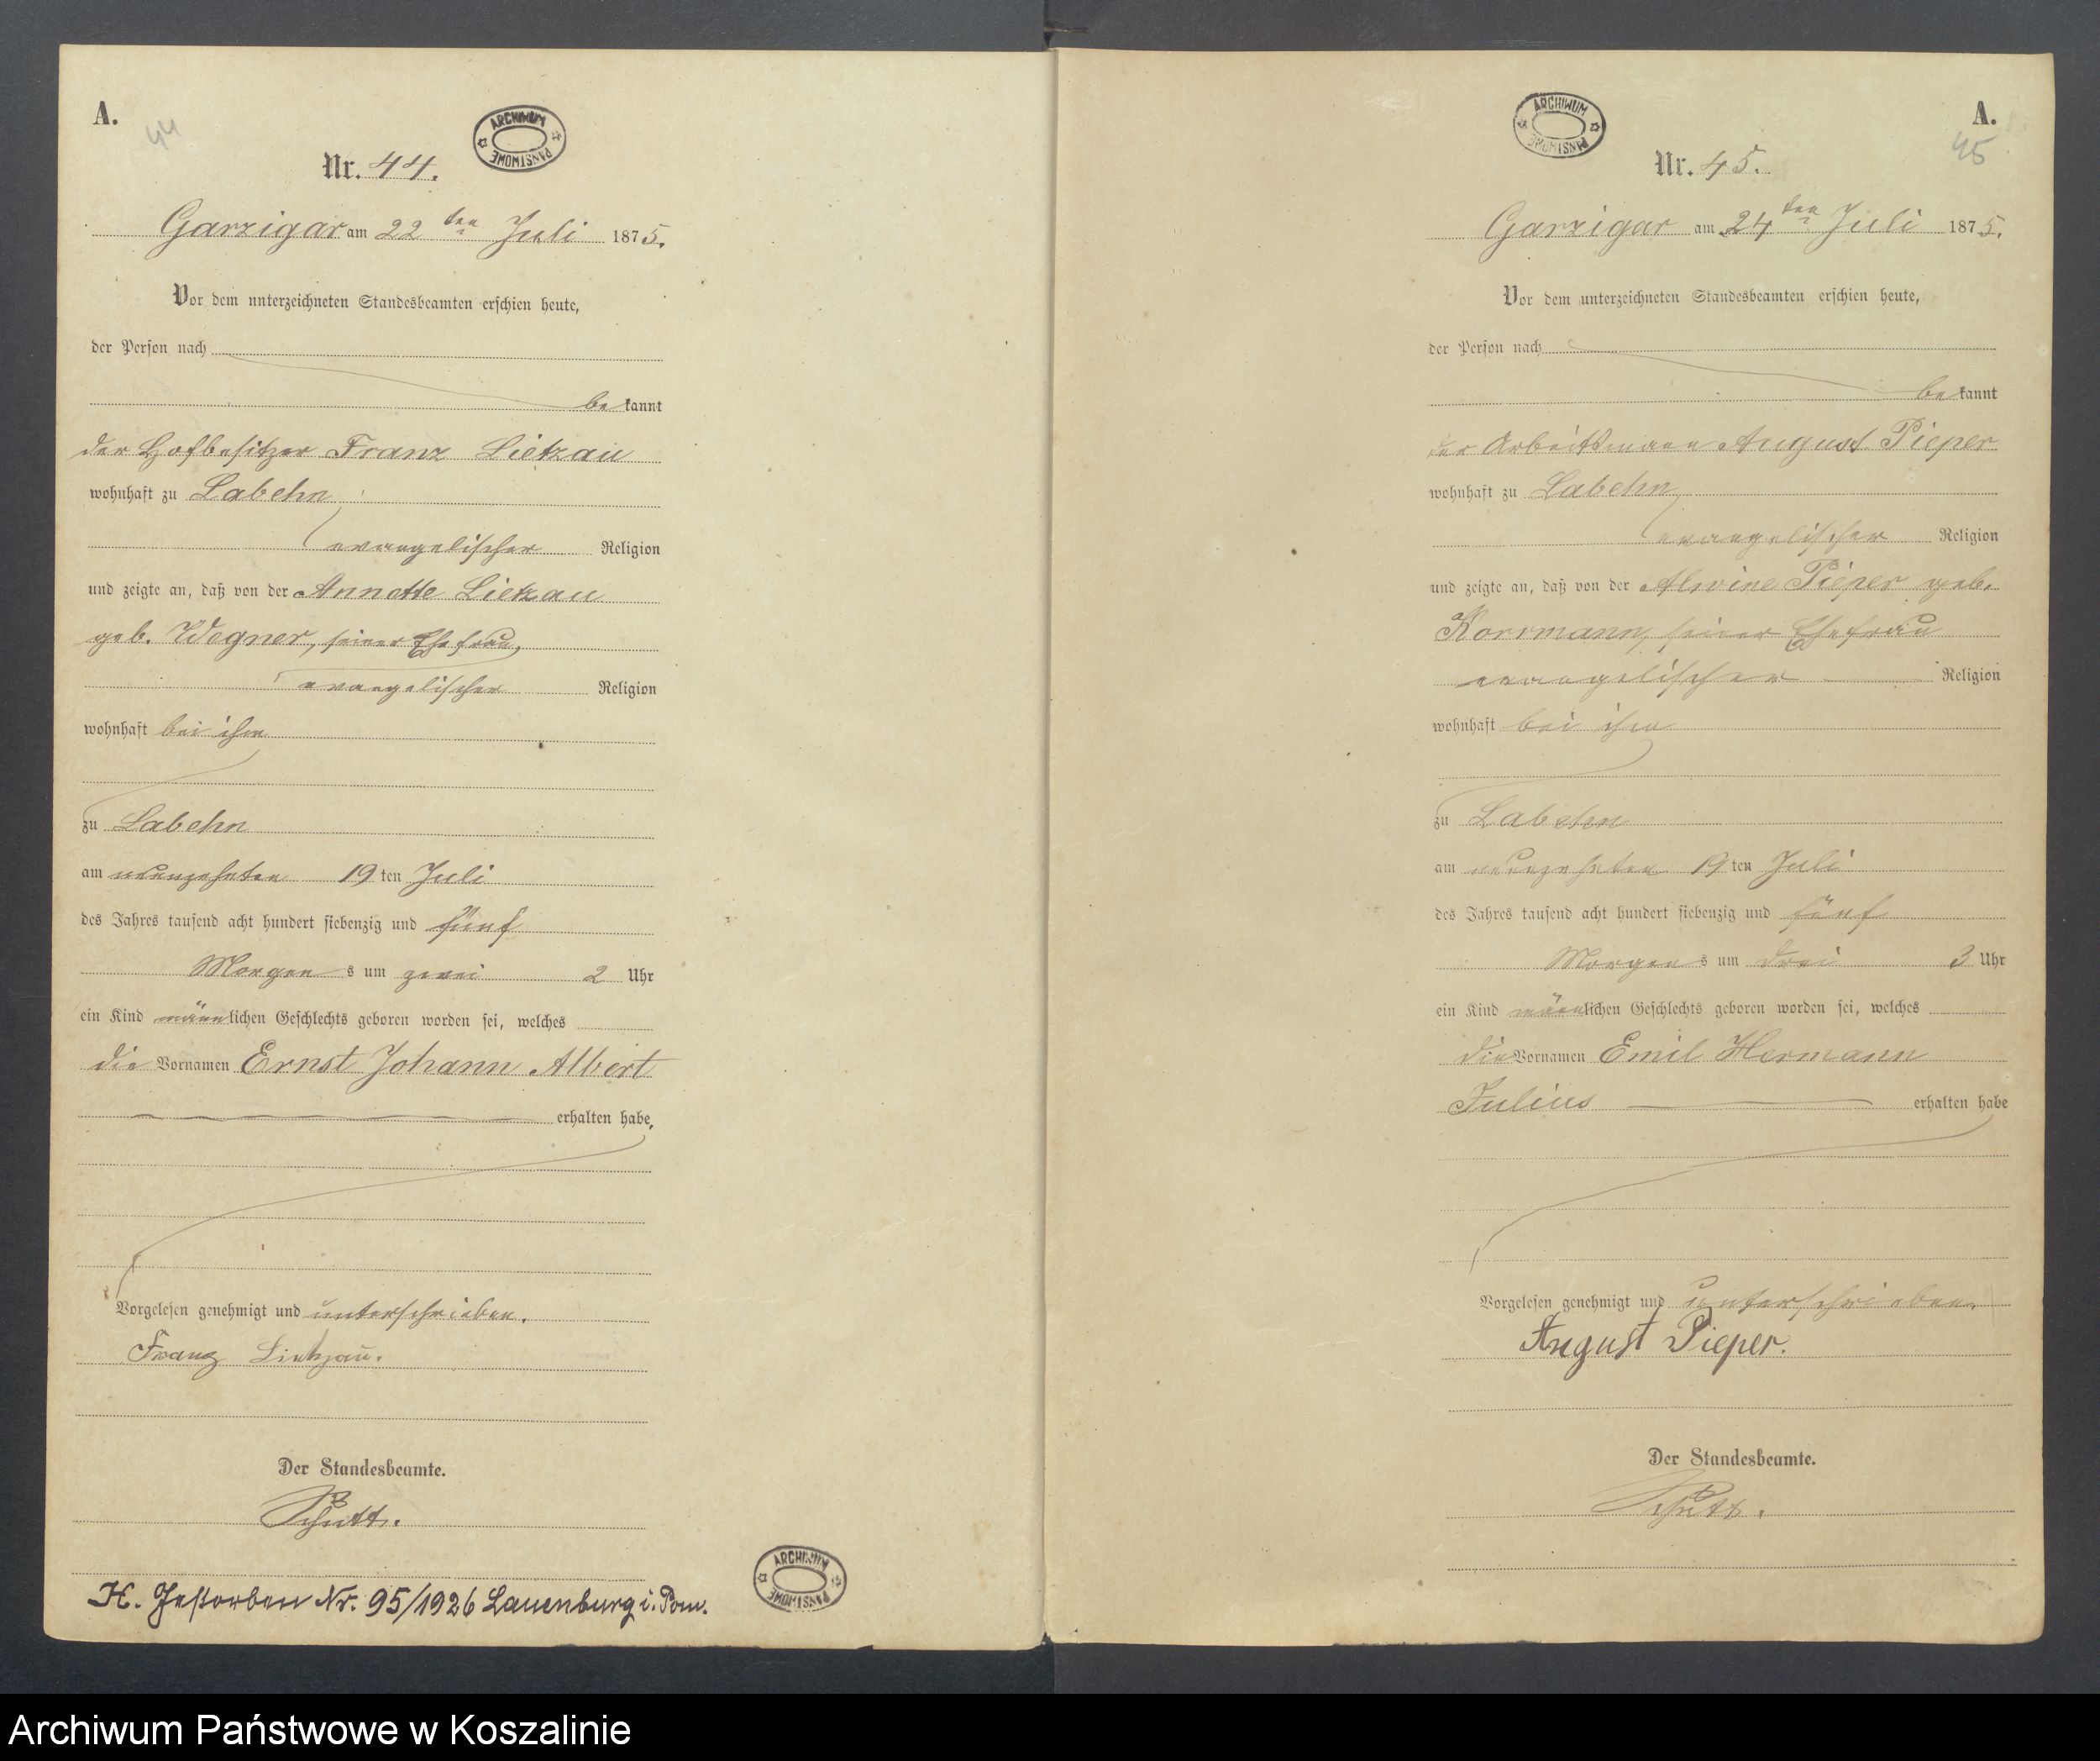 A.
44
ARCHIWUM PAŃSTWOWE
Nr. 44.
Garzigar am 22 ten Juli 1875.
Vor dem unterzeichneten Standesbeamten erschien heute,
der Person nach
bekannt
der Hofbesitzer Franz Lietzau
wohnhaft zu Labehn
evangelischer Religion
und zeigte an, daß von der Annotte Lietzau
geb. Wegner, seiner Ehefrau,
evangelischer Religion
wohnhaft bei ihm
zu Labehn
am neunzehnten 19 ten Juli
des Jahres tausend acht hundert siebenzig und fünf
Morgens um zwei 2 Uhr
ein Kind männlichen Geschlechts geboren worden sei, welches
die Vornamen Ernst Johann Albert
erhalten habe.
Vorgelesen genehmigt und unterschrieben.
Franz Lietzau.
Der Standesbeamte.
H. Gestorben Nr. 95/1926 Lauenburg i. Pom.
ARCHIWUM PAŃSTWOWE
A.
45
ARCHIWUM PAŃSTWOWE
Nr. 45.
Garzigar am 24 ten Juli 1875.
Vor dem unterzeichneten Standesbeamten erschien heute,
der Person nach
bekannt
der Arbeitsmann August Pieper
wohnhaft zu Labehn
evangelischer Religion
und zeigte an, daß von der Alwine Pieper geb.
Korrmann, seiner Ehefrau
evangelischer Religion
wohnhaft bei ihm
zu Labehn
am neunzehnten 19 ten Juli
des Jahres tausend acht hundert siebenzig und fünf
Morgens um drei 3 Uhr
ein Kind männlichen Geschlechts geboren worden sei, welches
die Vornamen Emil Hermann
Julius erhalten habe
Vorgelesen genehmigt und unterschrieben.
August Pieper.
Der Standesbeamte.
Archiwum Państwowe w Koszalinie